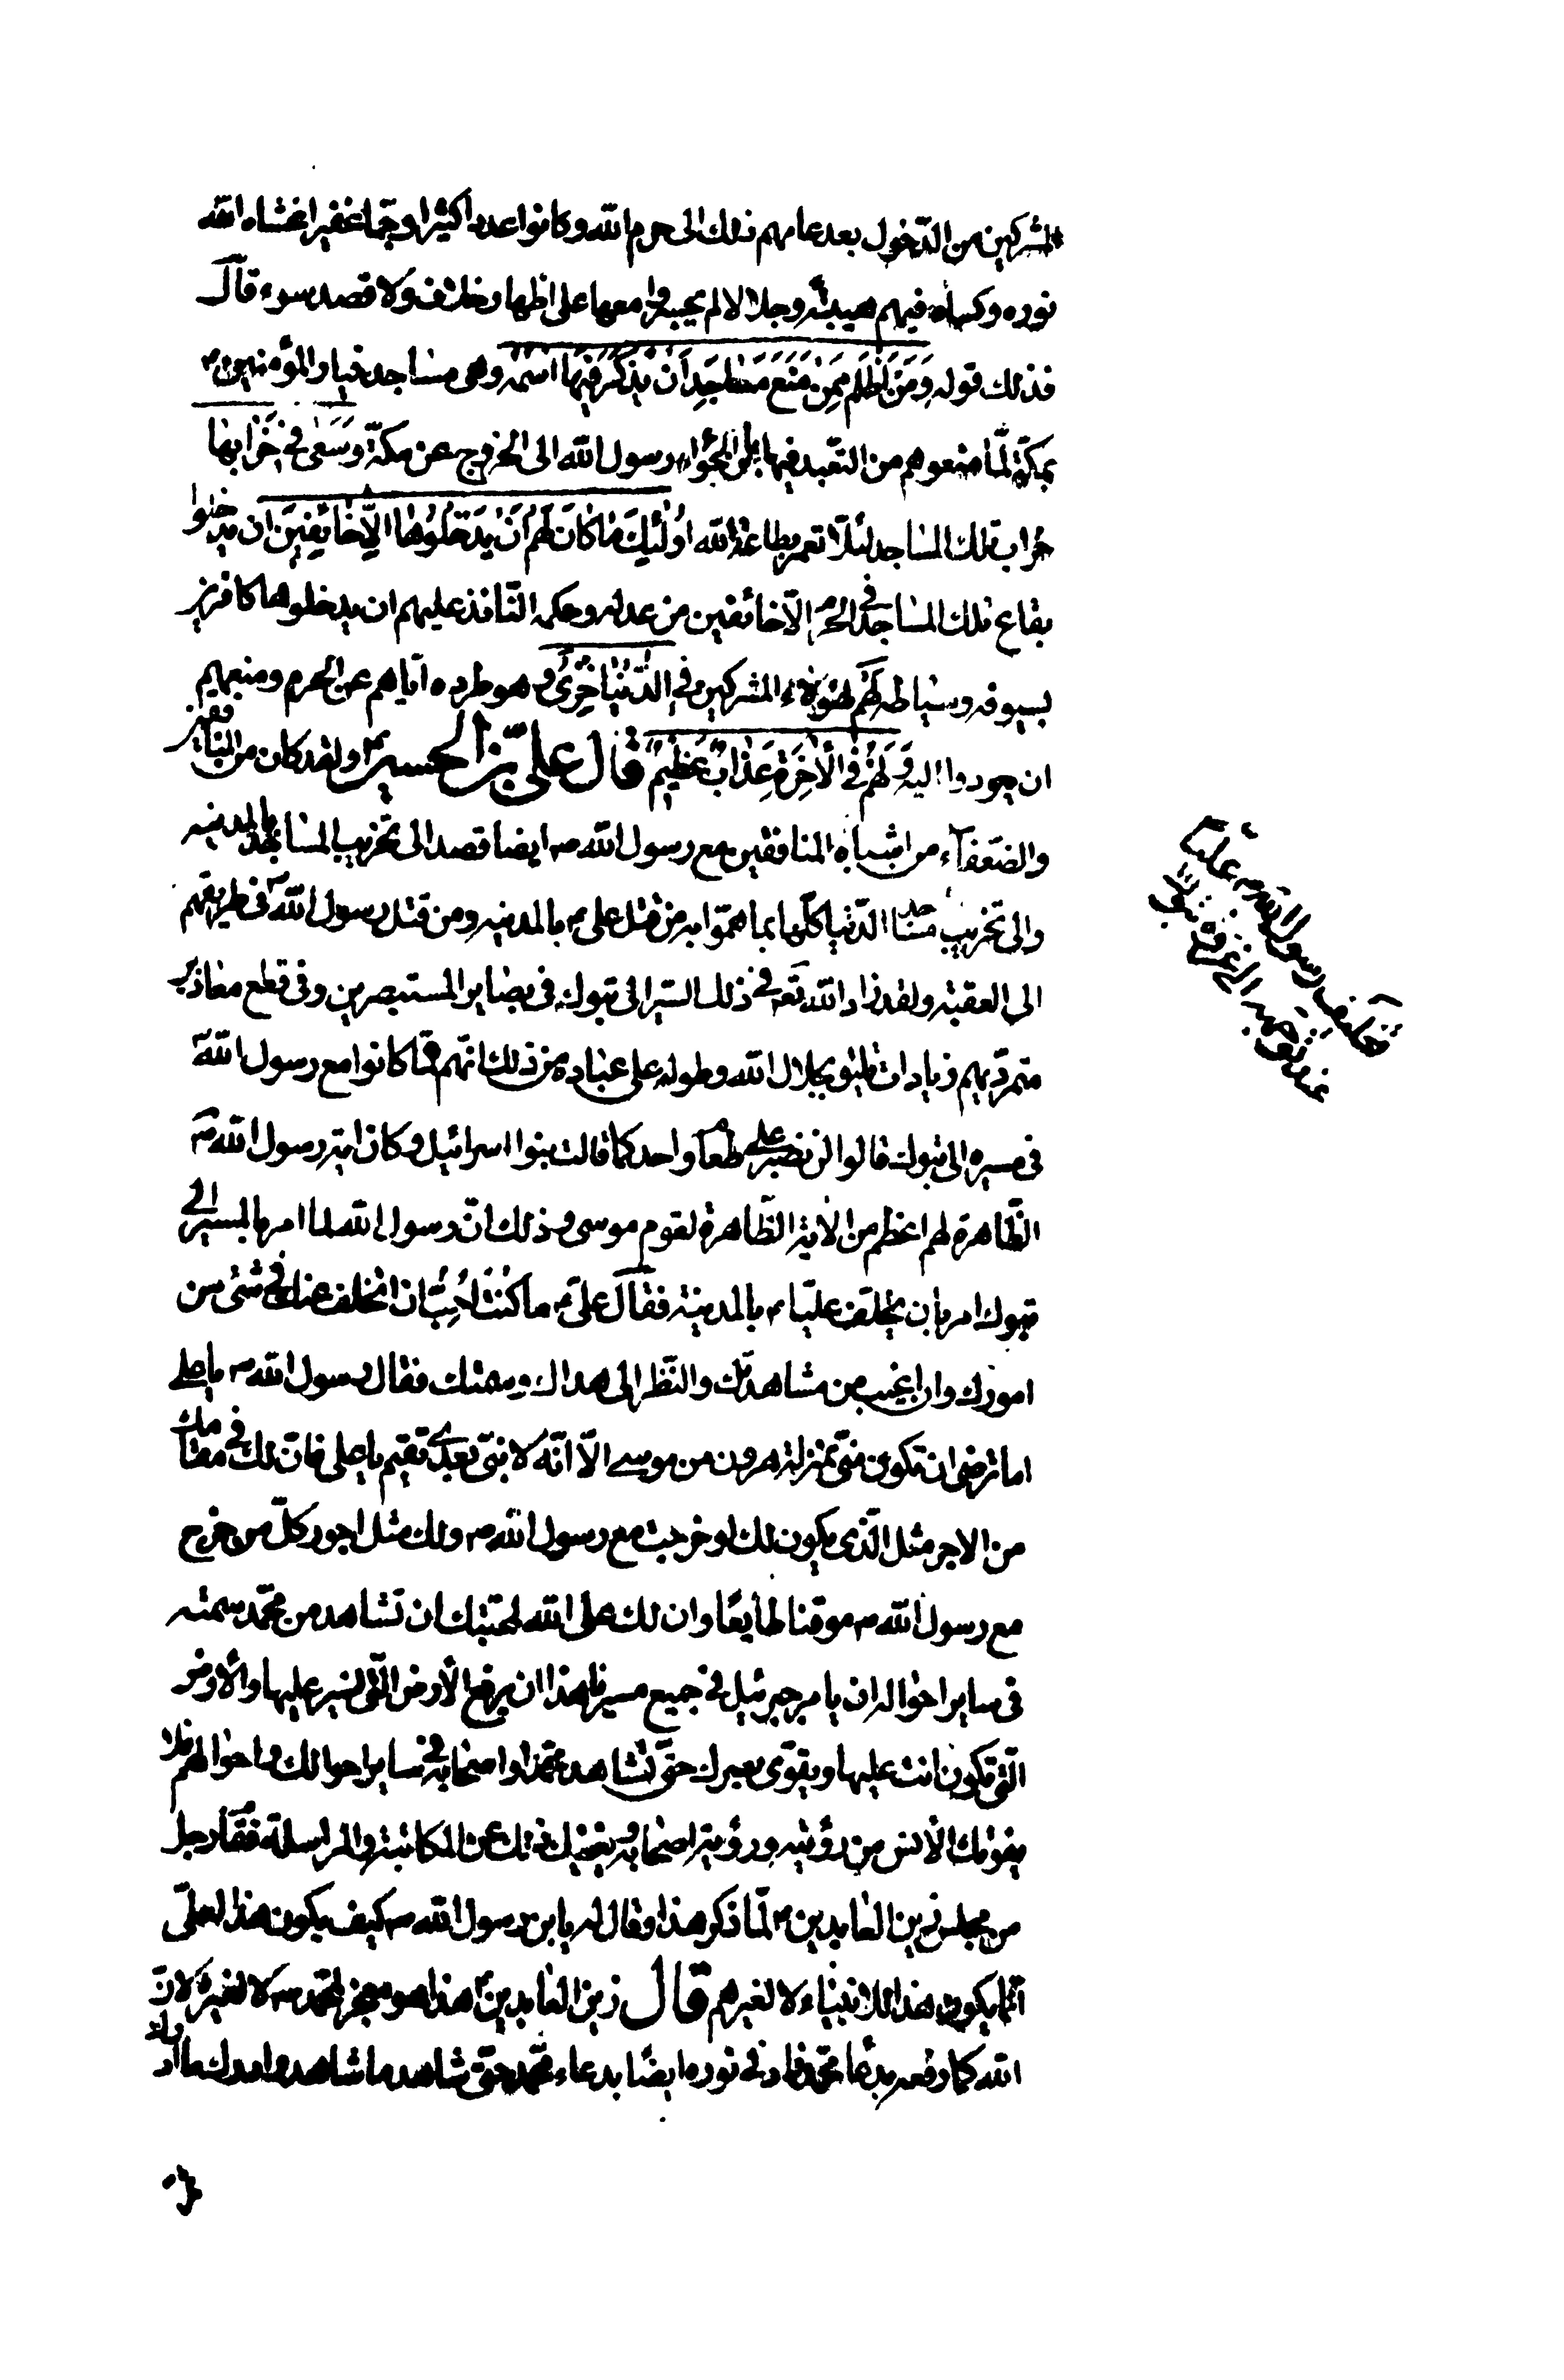 المشركين من الدّخول بعد عامهم ذلك الى حرم الله وكانوا عددا كثيرا وجمّا غفيرا غشاه الله
نوره وكساه فيهم هيبته وجلالا لم يجبروا معها على اظهار خلاف ولا قصد سوء قال
فذلك قوله وَمَنْ اَظْلَمُ مِمَّنْ مَنَعَ مَسٰاجِدَ اَنْ يُذْكَرَ فِيهَا اسْمُهُ وهى مساجد خيار المؤمنين
بمكّة لمّا منعوهم من التعّبد فيها بان الجؤا رسول الله الى الخروج عن مكّة وَسَعٰى فِى خَرٰابِهٰا
خراب تلك المساجد لئلّا تعمر بطاعة الله اُولٰئِكَ مٰا كٰانَ لَهُمْ اَنْ يَدْخُلُوهٰا اِلّٰا خٰائِفِينَ ان يدخلوا
بقاع تلك المساجد فى الحرم الّا خائفين من عدله وحكمه النّافذ عليهم ان يدخلوها كافرين
بسيوفه وسياطه لَهُمْ لهؤلاء المشركين فِى الدُّنْيٰا خِزْىٌ وهو طرده ايّاهم عن الحرم ومنعهم
ان يعودوا اليه وَلَهُمْ فِى الْاٰخِرَةِ عَذٰابٌ عَظِيمٌ قال علىّ بن الحسين ولقد كان من المنافقين
والضعفآء من اشباه المنافقين مع رسول الله ص ايضا قصد الى تخريب المساجد بالمدينه
والى تخريب مساجد الدّنيا كلّها بما همّوا به من قتل على بالمدينه ومن قتل رسول الله فى طريقهم
الى العقبة ولقد زاد الله تعه فى ذلك السّير الى تبوك فى بصاير المستبصرين وفى قطع معاذير
متمرّديهم زيادات تليق بجلال الله وطوله على عباده من ذلك انّهم لمّا كانوا مع رسول الله
فى مسيره الى تبوك قالوا لن نصبر على طعام واحد كما قالت بنوا اسرائيل وكان اية رسول الله
الظّاهرة لهم اعظم من الآية الظّاهرة لقوم موسى وذلك انّ رسول الله لما امر بالمسير الى
تبوك امر بان يخلّف عليّا بالمدينة فقال علىّ ما كُنْتُ اُحِبُّ ان اتخلّف عنك فى شئ من
امورك وان اغيب من مشاهدتك والنّظر الى هداك وسمتك فقال رسول الله ص يا على
اما ترضى ان تكون منّى بمنزلة هرون من موسى الّا انّه لا نبىّ بعدى تقيم يا على فان لك فى مقامك
من الاجر مثل الّذى يكون لك لو خرجت مع رسول الله ص ولك مثل اجور كلّ من خرج
مع رسول الله ص موقنا طايعًا وان لك على الله لمحبّتك ان تشاهد من محمّد سمته
فى ساير احواله ان يامر جبرئيل فى جميع مسيرنا هذا ان يرفع الأرض الّتى نسير عليها والأرض
الّتى تكون انت عليها ويقوّى بصرك حتّى تشاهد محمّدا واصحابه فى ساير احوالك واحوالهم فلا
يفوتك الأنس من رؤيته ورؤية اصحابه ويغنيك ذلك عن المكاتبة والمراسلة فقال رجل
من مجلس زين العابدين لمّا ذكر هذا وقال له يا بن رسول الله ص كيف يكون هذا لعلىّ
انّما يكون هذا للانبياء لا لغيرهم قال زين العابدين هذا هو معجز لمحمّد ص لا لغيره لانّ
الله كما رفعه بدعا محمّد زاد فى نوره ايضًا بدعاء محمّد حتّى شاهد ما شاهد وادرك ما ادرك
خلّف رسول الله ص عليّا
عند توجّهه الى غزوة تبوك